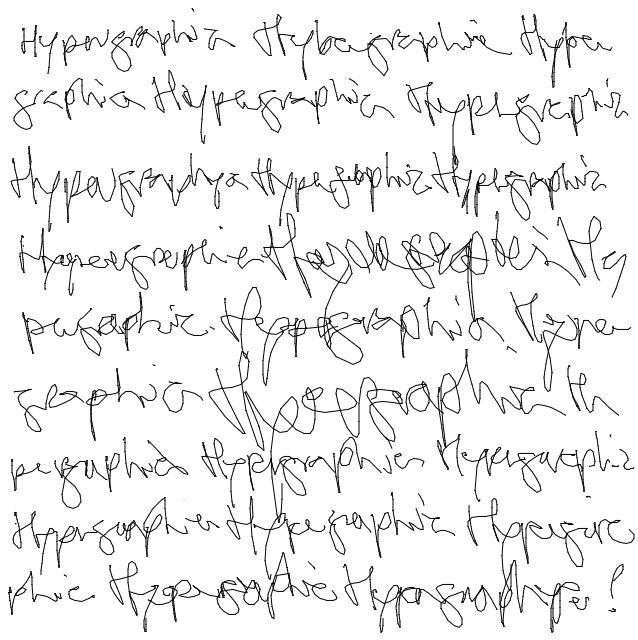 Hypergraphia Hypergraphia Hyper
graphia Hypergraphia Hypergraphia
Hypergraphia Hypergraphia Hypergraphia
Hypergraphia Hypergraphia Hy
pergraphia Hypergraphia Hyper
graphia Hypergraphia Hy
pergraphia Hypergraphia Hypergraphia
Hypergraphia Hypergraphia Hypergra
phia Hypergraphia Hypergraphia!